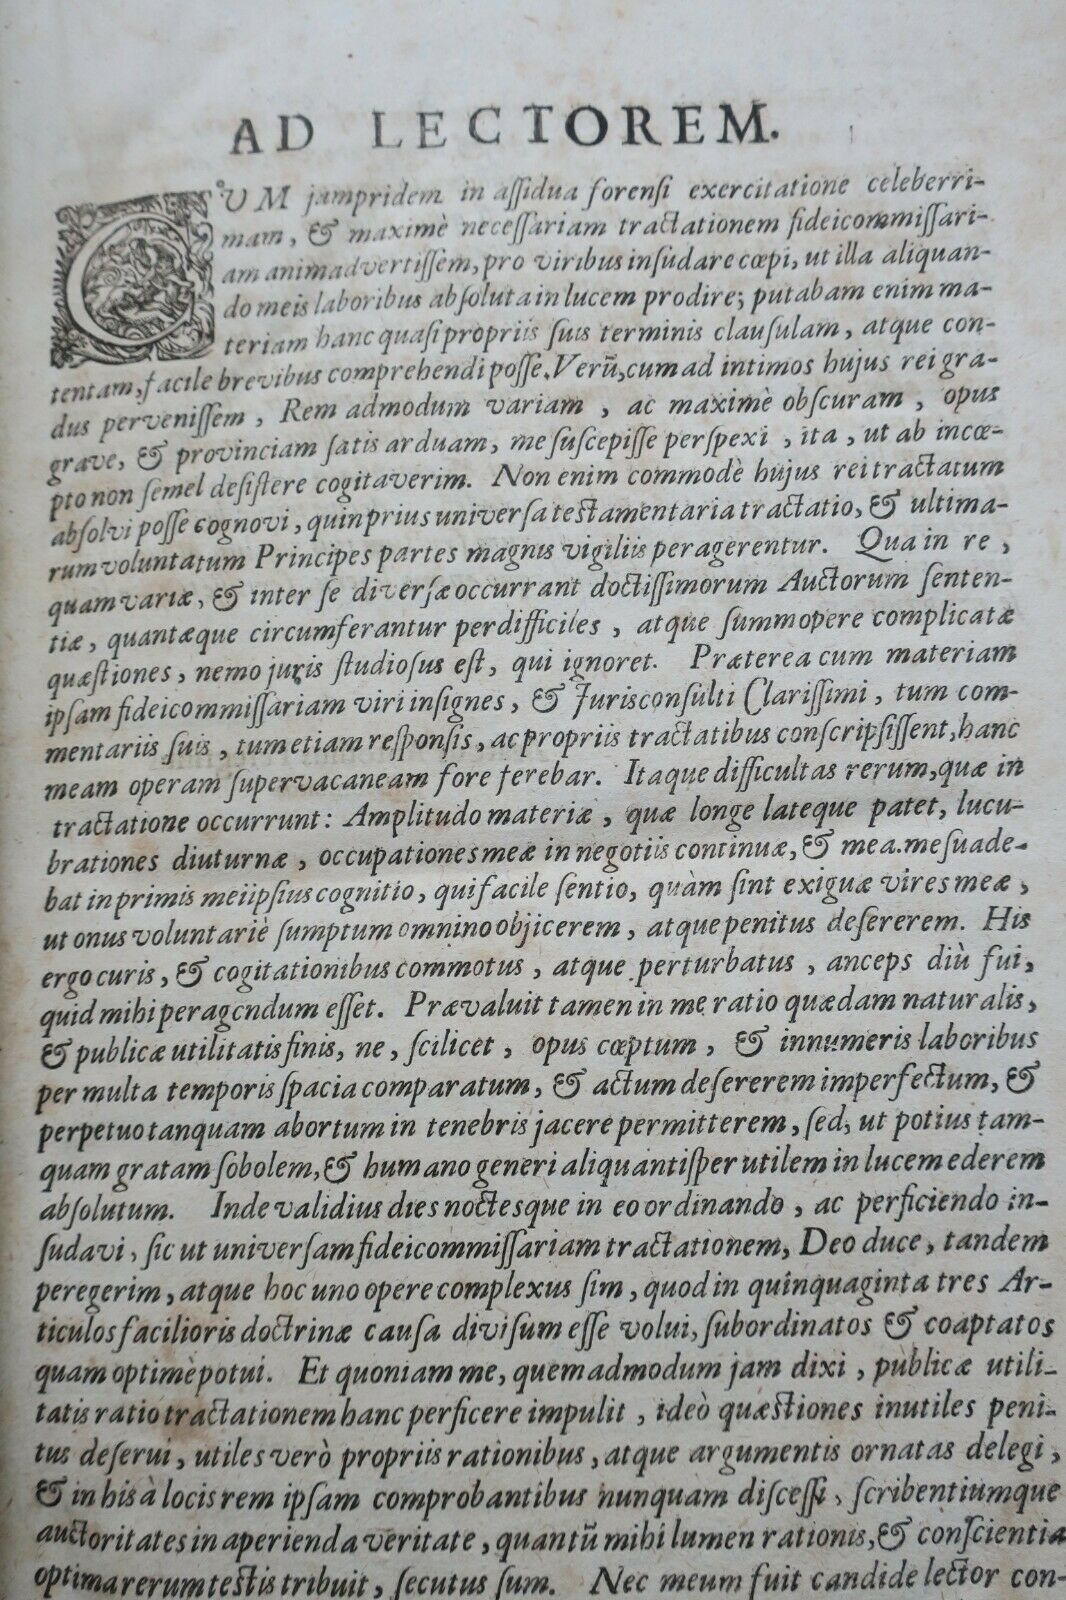 AD LECTOREM.
CUM jampridem in assidua forensi exercitatione celeberri-
mam, & maximè necessariam tractationem fideicommissari-
am animadvertissem, pro viribus insudare cœpi, ut illa aliquan-
do meis laboribus absoluta in lucem prodire; putabam enim ma-
teriam hanc quasi propriis suis terminis clausulam, atque con-
tentam, facile brevibus comprehendi posse. Verũ, cum ad intimos hujus rei gra-
dus pervenissem, Rem admodum variam, ac maximè obscuram, opus
grave, & provinciam satis arduam, me suscepisse perspexi, ita, ut ab incœ-
pto non semel desistere cogitaverim. Non enim commodè hujus rei tractatum
absolvi posse cognovi, quin prius universa testamentaria tractatio, & ultima-
rum voluntatum Principes partes magnis vigiliis peragerentur. Qua in re,
quam variæ, & inter se diversæ occurrant doctissimorum Auctorum senten-
tiæ, quantæque circumferantur perdifficiles, atque summopere complicatæ
quæstiones, nemo juris studiosus est, qui ignoret. Præterea cum materiam
ipsam fideicommissariam viri insignes, & Jurisconsulti Clarissimi, tum com-
mentariis suis, tum etiam responsis, ac propriis tractatibus conscripsissent, hanc
meam operam supervacaneam fore rerebar. Itaque difficultas rerum, quæ in
tractatione occurrunt: Amplitudo materiæ, quæ longe lateque patet, lucu-
brationes diuturnæ, occupationes meæ in negotiis continuæ, & mea. me suade-
bat in primis mei ipsius cognitio, qui facile sentio, quàm sint exiguæ vires meæ,
ut onus voluntariè sumptum omnino objicerem, atque penitus desererem. His
ergo curis, & cogitationibus commotus, atque perturbatus, anceps diù fui,
quid mihi peragendum esset. Prævaluit tamen in me ratio quædam naturalis,
& publicæ utilitatis finis, ne, scilicet, opus cœptum, & innumeris laboribus
per multa temporis spacia comparatum, & actum desererem imperfectum, &
perpetuo tanquam abortum in tenebris jacere permitterem, sed, ut potius tam-
quam gratam sobolem, & humano generi aliquantisper utilem in lucem ederem
absolutum. Inde validius dies noctesque in eo ordinando, ac perficiendo in-
sudavi, sic ut universam fideicommissariam tractationem, Deo duce, tandem
peregerim, atque hoc uno opere complexus sim, quod in quinquaginta tres Ar-
ticulos facilioris doctrinæ causa divisum esse volui, subordinatos & coaptatos
quam optimè potui. Et quoniam me, quemadmodum jam dixi, publicæ utili-
tatis ratio tractationem hanc perficere impulit, ideò quæstiones inutiles peni-
tus deserui, utiles verò propriis rationibus, atque argumentis ornatas delegi,
& in his à locis rem ipsam comprobantibus nunquam discessi, scribentiumque
auctoritates in aperienda veritate, quantũ mihi lumen rationis, & conscientia
optima rerum testis tribuit, secutus sum. Nec meum fuit candide lector con-